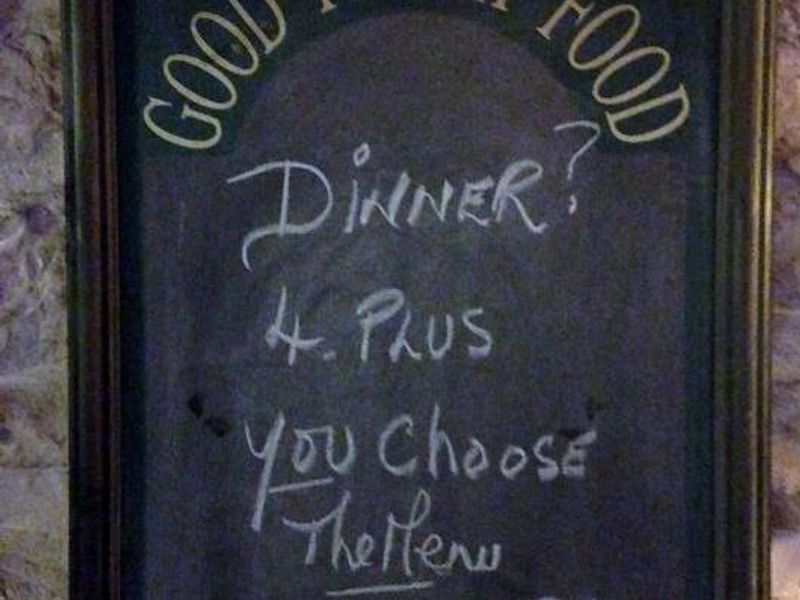 GOOD FOOD
DiNNER?
4. PLUS
you Choose
The Menu